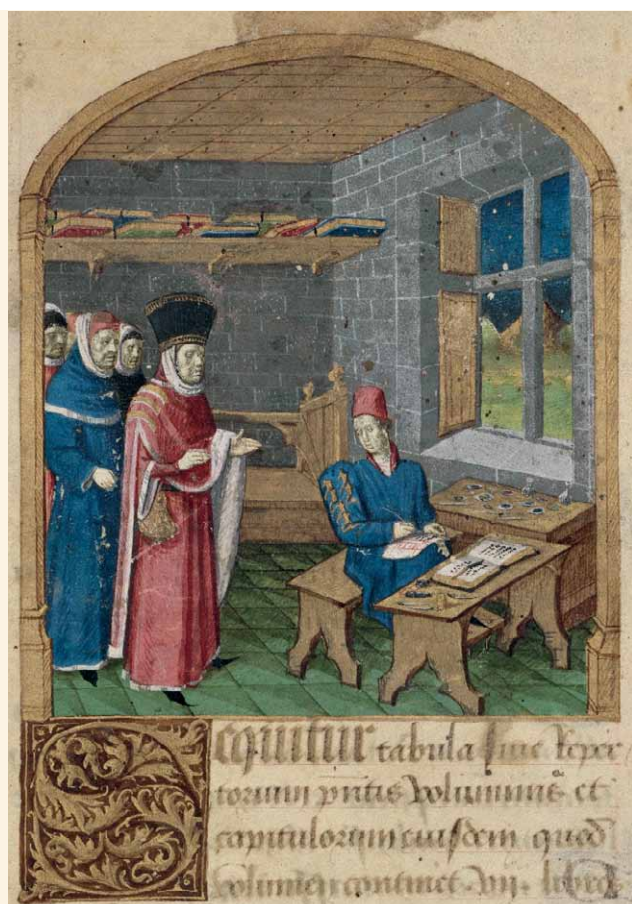 Sequitur tabula siue Reper
torium pntis voluminis et
capitulorum eiusdem quod
volumen continet .vii. libros